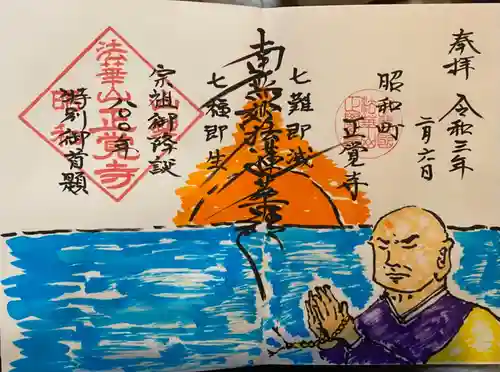 奉拝
令和三年
二月六日
昭和町
正覚寺
七難即滅
南無妙法蓮華経
七種即生
宗祖御降誕
八〇〇年
特別御首題
法華山正覚寺
昭和